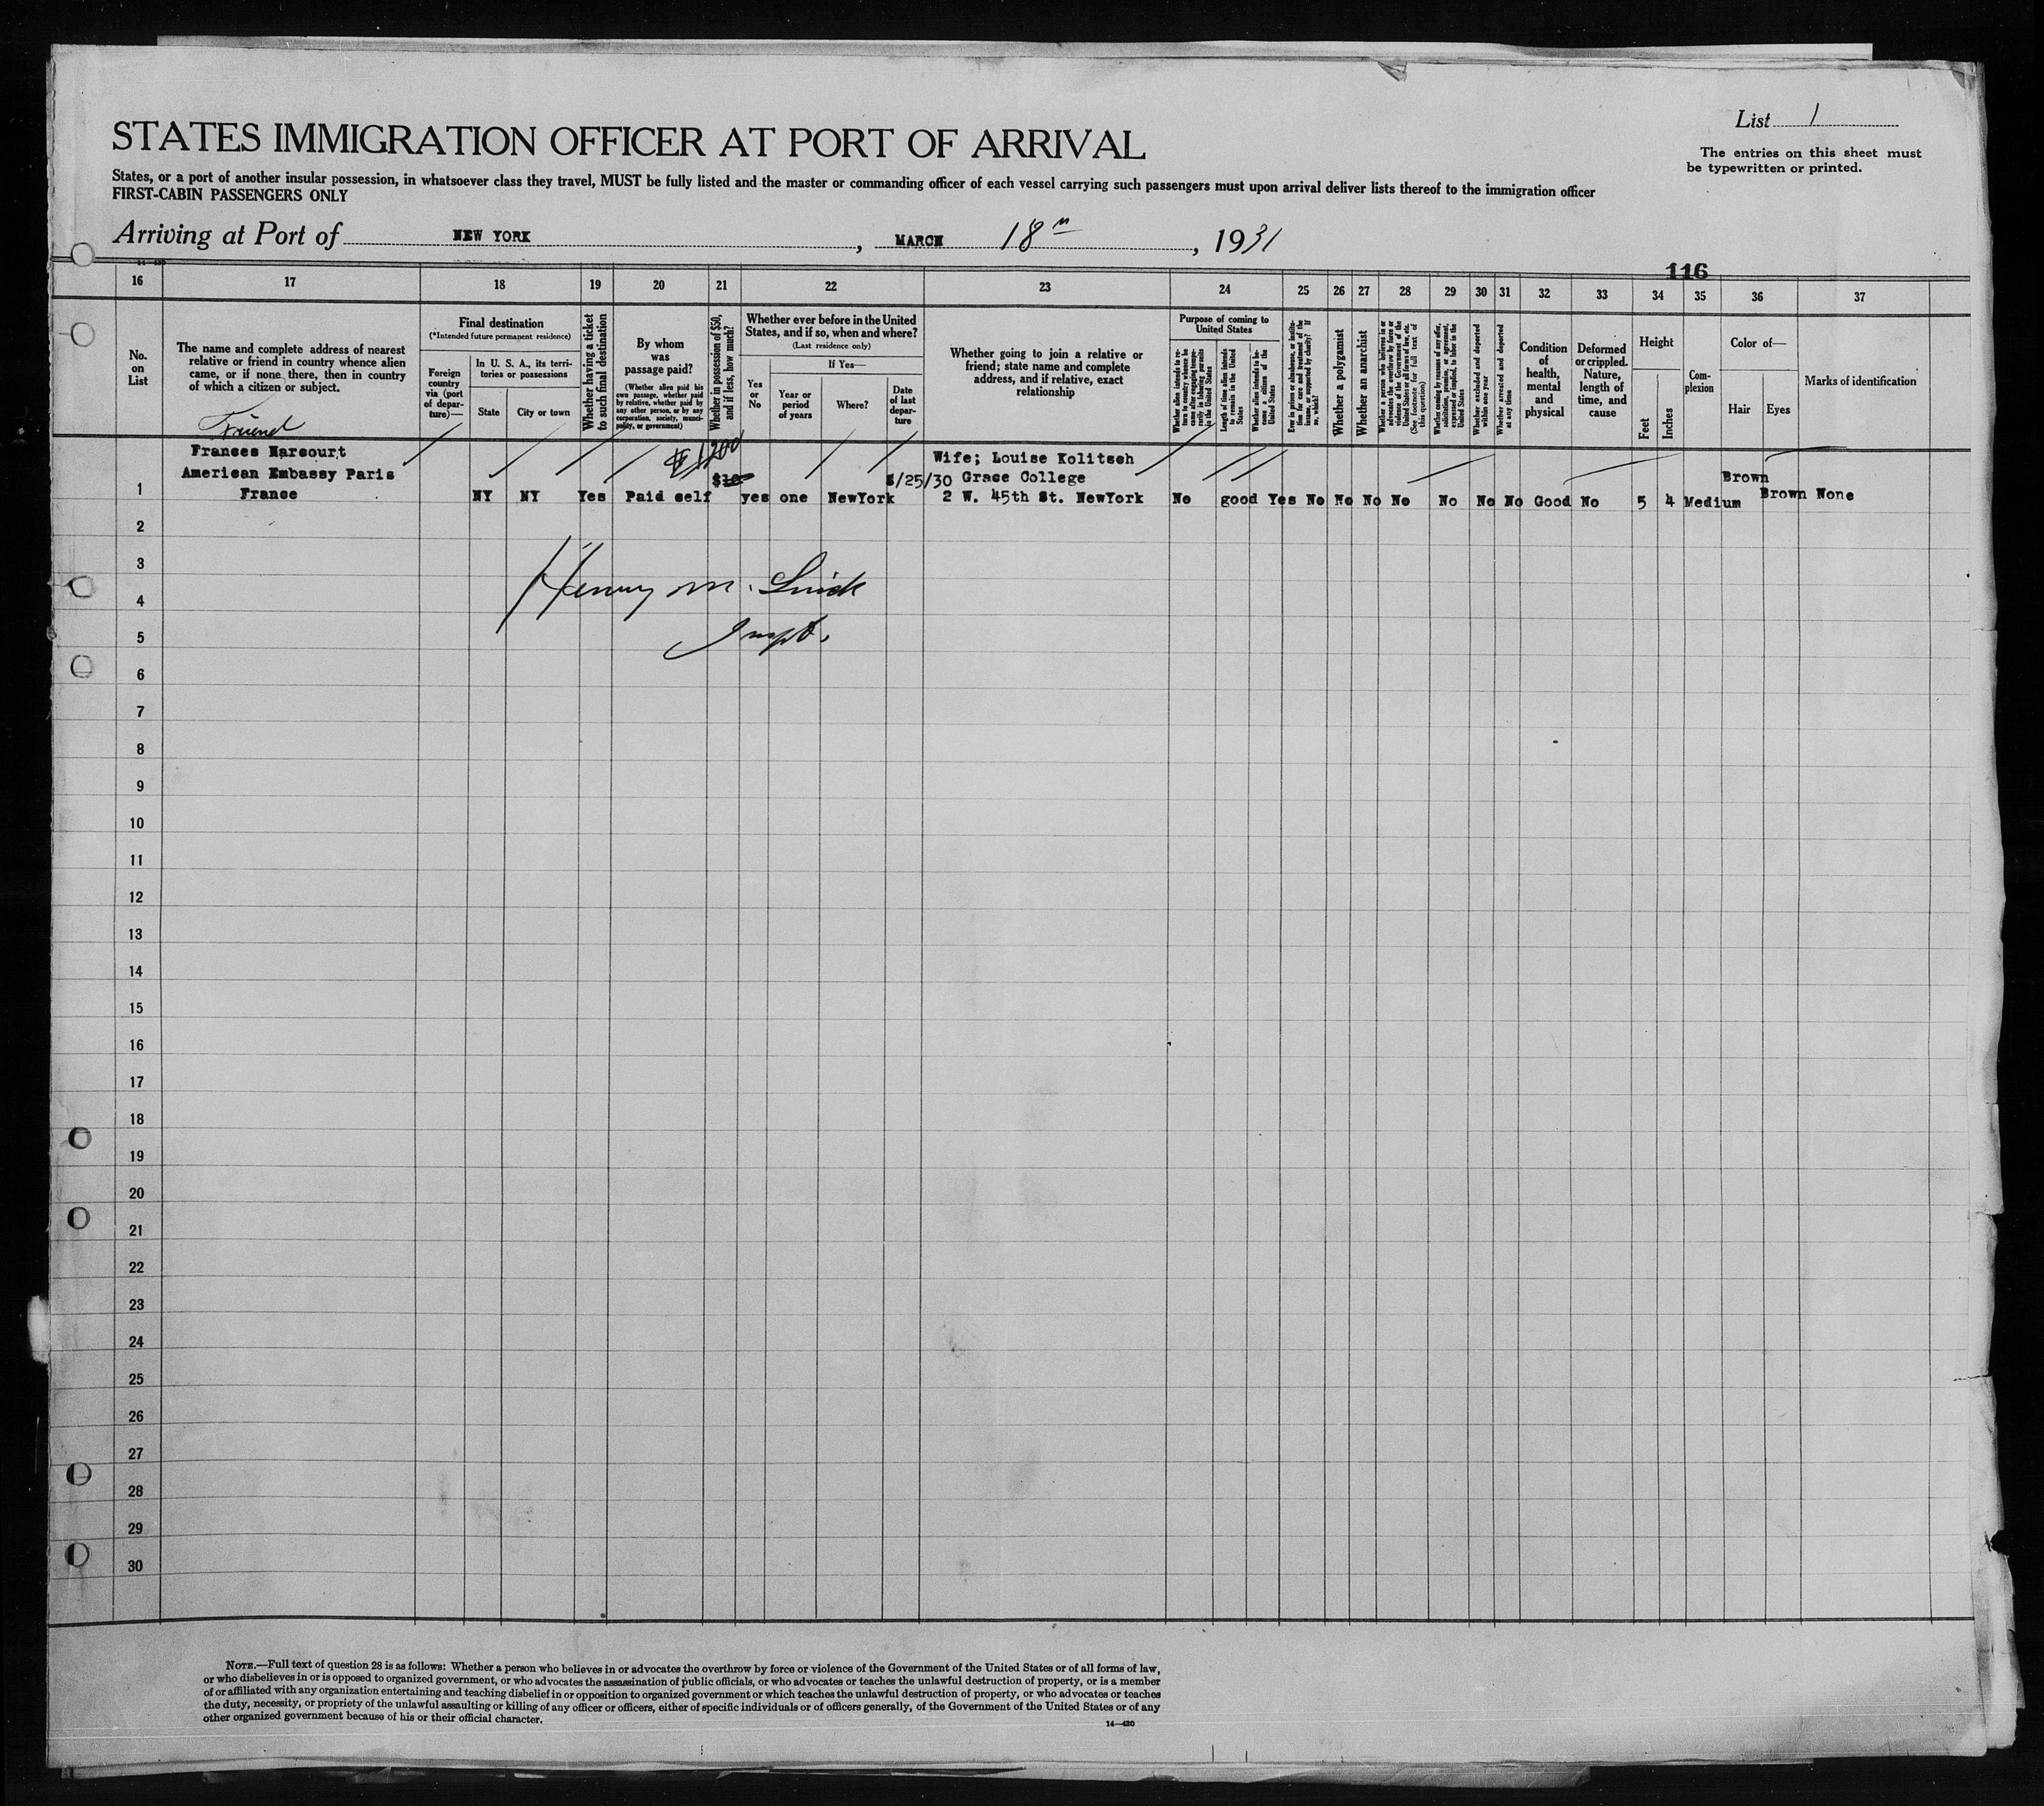 List 1
STATES IMMIGRATION OFFICER AT PORT OF ARRIVAL
The entries on this sheet must
be typewritten or printed.
States, or a port of another insular possession, in whatsoever class they travel, MUST be fully listed and the master or commanding officer of each vessel carrying such passengers must upon arrival deliver lists thereof to the immigration officer
FIRST-CABIN PASSENGERS ONLY
Arriving at Port of NEW YORK, MARCH 18th, 1931
116
16 17 18 19 20 21 22 23 24 25 26 27 28 29 30 31 32 33 34 35 36 37
No.
on
List
The name and complete address of nearest
relative or friend in country whence alien
came, or if none there, then in country
of which a citizen or subject.
Friend
Final destination
(*Intended future permanent residence)
Foreign
country
via (port
of depar-
ture)—
In U. S. A., its terri-
tories or possessions
State
City or town
Whether having a ticket
to such final destination
By whom
was
passage paid?
(Whether alien paid his
own passage, whether paid
by relative, whether paid by
any other person, or by any
corporation, society, munici-
pality, or government)
Whether in possession of $50,
and if less, how much?
Whether ever before in the United
States, and if so, when and where?
(Last residence only)
Yes
or
No
If Yes—
Year or
period
of years
Where?
Date
of last
depar-
ture
Whether going to join a relative or
friend; state name and complete
address, and if relative, exact
relationship
Purpose of coming to
United States
Whether alien intends to re-
turn to country whence he
came after engaging tempo-
rarily in laboring pursuits
in the United States
Length of time alien intends
to remain in the United
States
Whether alien intends to be-
come a citizen of the
United States
Ever in prison or almshouse, or institu-
tion for care and treatment of the
insane, or supported by charity? If
so, which?
Whether a polygamist
Whether an anarchist
Whether a person who believes in or
advocates the overthrow by force or
violence of the Government of the
United States or all forms of law, etc.
(See footnote for full text of
this question)
Whether coming by reason of any offer,
solicitation, promise, or agreement,
expressed or implied, to labor in the
United States
Whether excluded and deported
within one year
Whether arrested and deported
at any time
Condition
of
health,
mental
and
physical
Deformed
or crippled.
Nature,
length of
time, and
cause
Height
Feet
Inches
Com-
plexion
Color of—
Hair
Eyes
Marks of identification
Frances Harcourt
American Embassy Paris
France
$1200
Wife; Louise Kolitsch
/25/30 Grace College
Brown
1 NY NY Yes Paid self yes one NewYork 2 W. 45th St. NewYork No good Yes No No No No No No No Good No 5 4 Medium Brown None
2
3
Henry M. Linck
4
5
Inspt.
6
7
8
9
10
11
12
13
14
15
16
17
18
19
20
21
22
23
24
25
26
27
28
29
30
NOTE.—Full text of question 28 is as follows: Whether a person who believes in or advocates the overthrow by force or violence of the Government of the United States or of all forms of law,
or who disbelieves in or is opposed to organized government, or who advocates the assassination of public officials, or who advocates or teaches the unlawful destruction of property, or is a member
of or affiliated with any organization entertaining and teaching disbelief in or opposition to organized government or which teaches the unlawful destruction of property, or who advocates or teaches
the duty, necessity, or propriety of the unlawful assaulting or killing of any officer or officers, either of specific individuals or of officers generally, of the Government of the United States or of any
other organized government because of his or their official character.
14—420